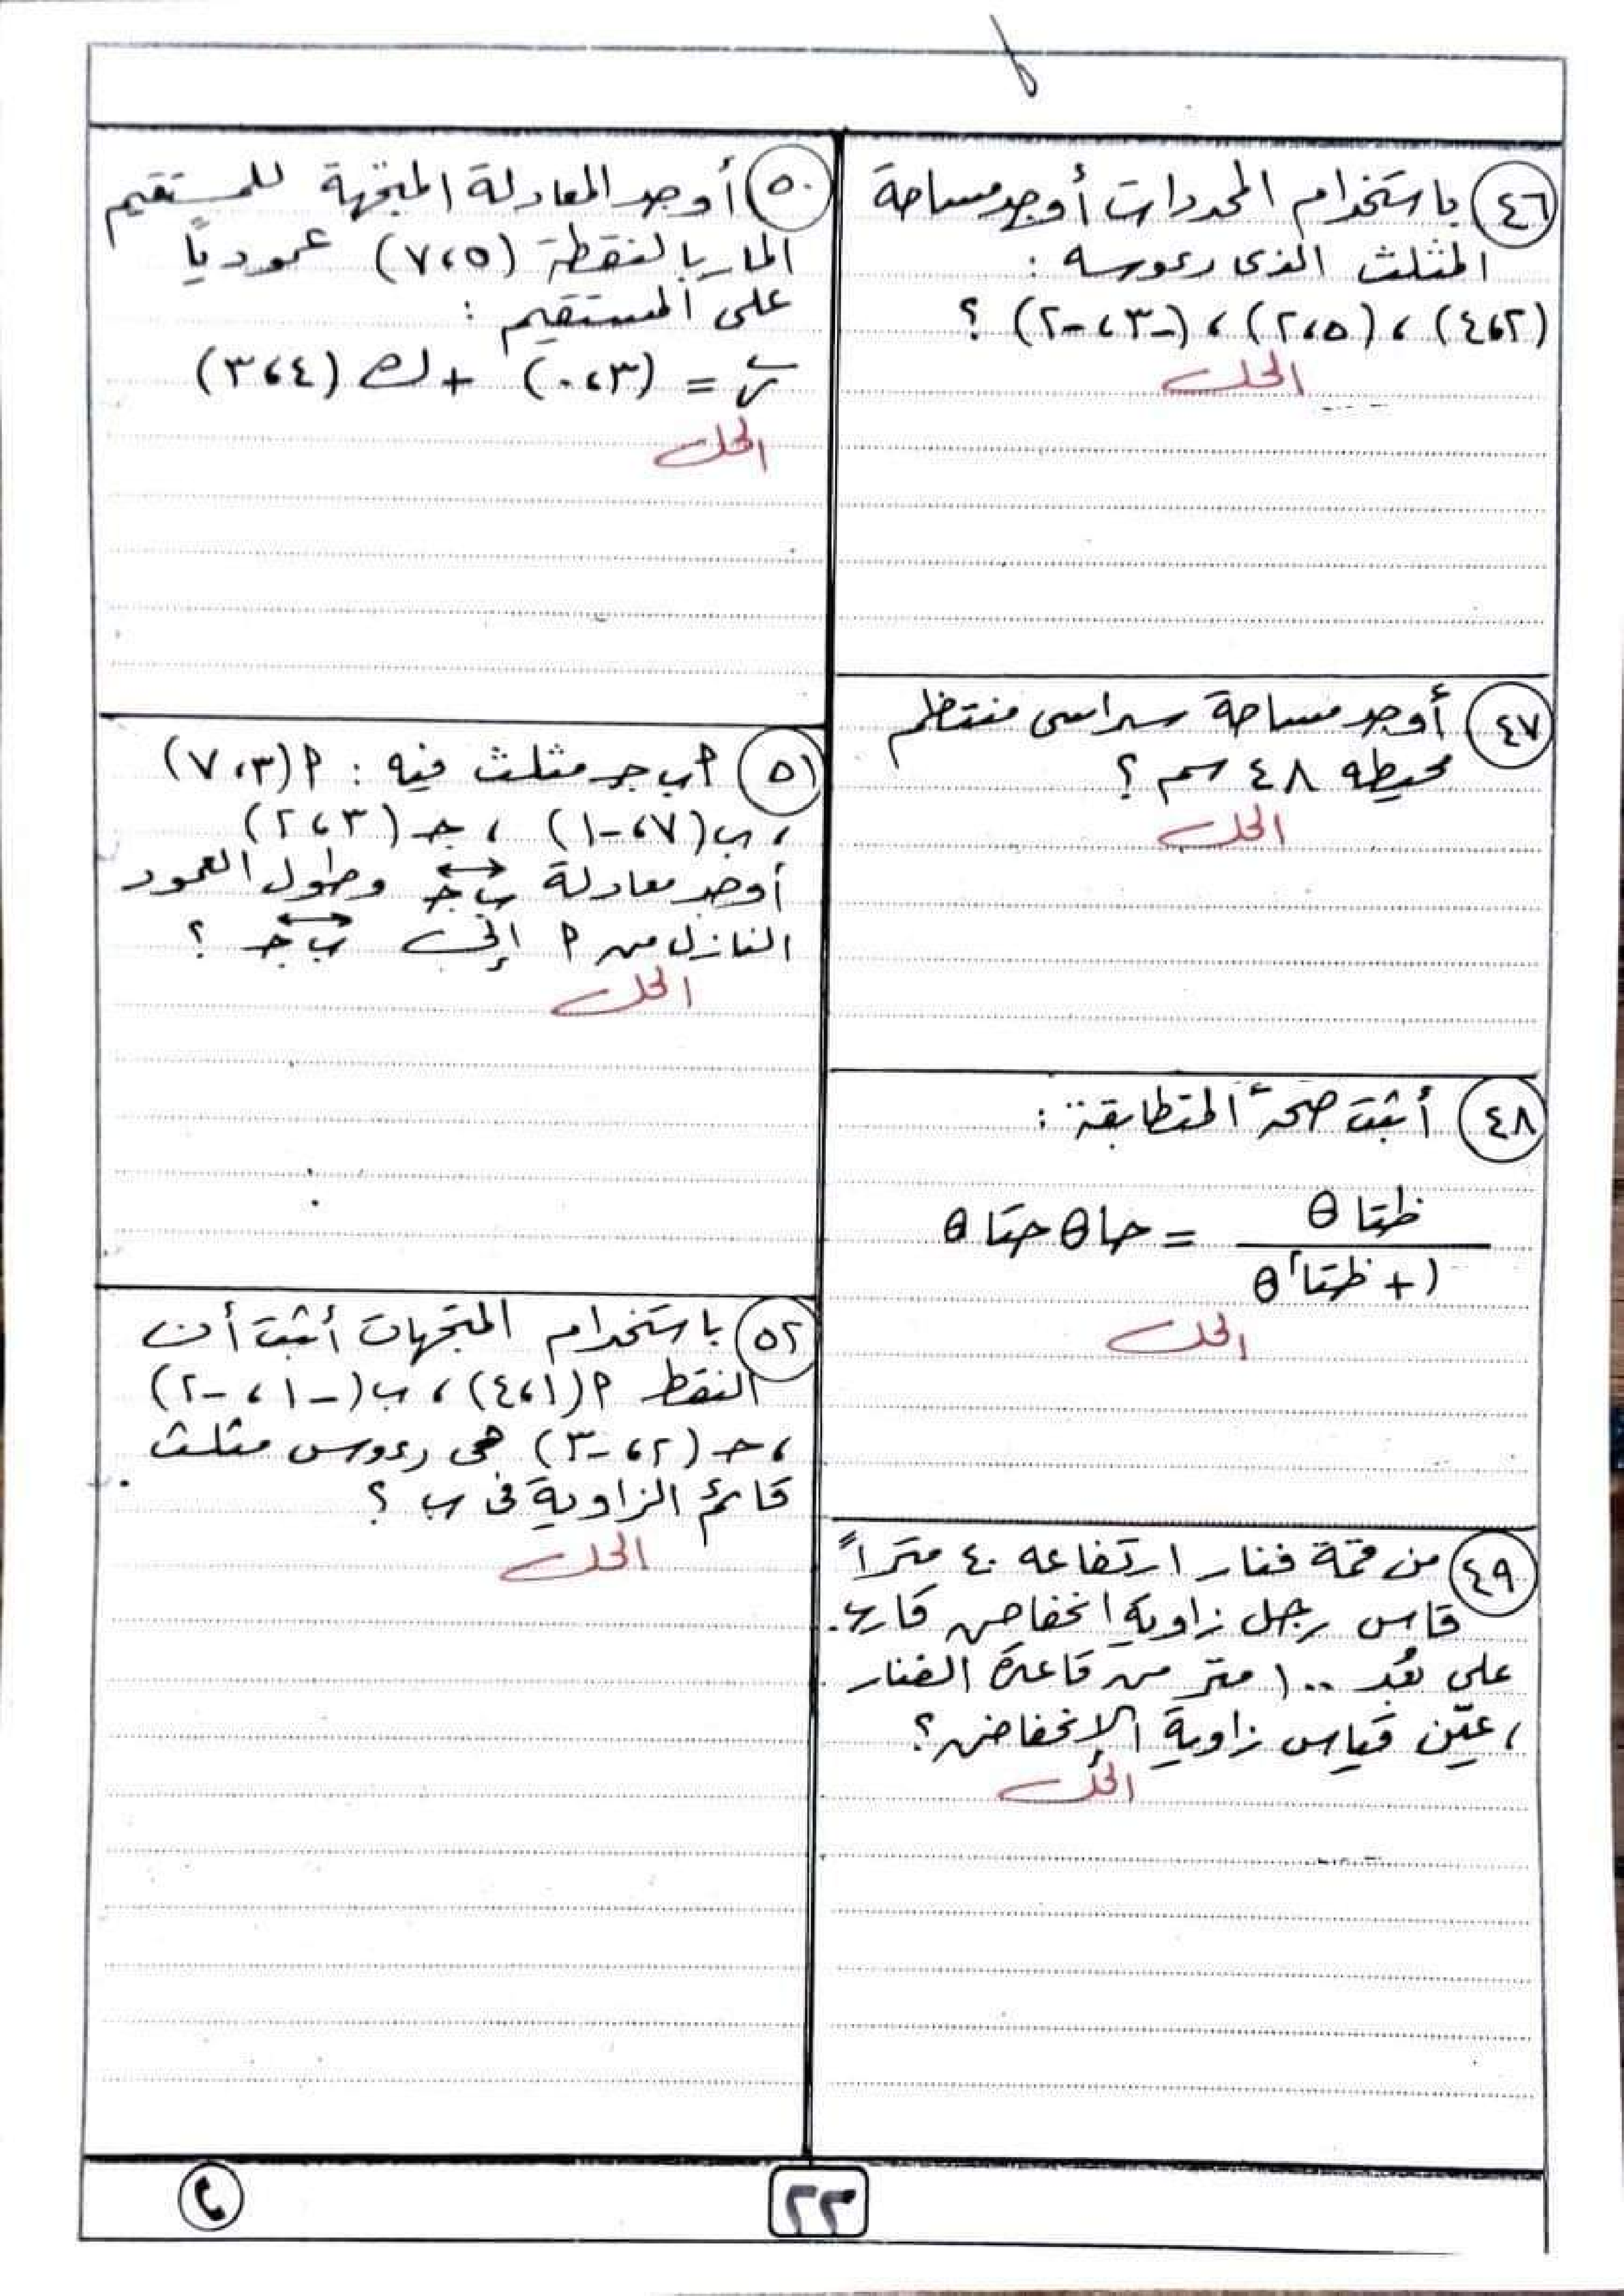 ٤٦ باستخدام المحددات أوجد مساحة
المثلث الذى رءوسه :
(٢،٤) ، (٥،٢) ، (-٣،-٢) ؟
الحل
٤٧ أوجد مساحة سداسى منتظم
محيطه ٤٨ سم ؟
الحل
٤٨ أثبت صحة المتطابقة :
ظتا θ
ــــــــ = حا θ حتا θ
١ + ظتا٢ θ
الحل
٤٩ من قمة فنار ارتفاعه ٤٠ متراً
قاس رجل زاوية انخفاض قارب
على بُعد ١٠٠ متر من قاعدة الفنار
، عيّن قياس زاوية الإنخفاض ؟
الحل
٥٠ أوجد المعادلة المتجهة للمستقيم
المار بالنقطة (٥،٧) عمودياً
على المستقيم :
ر = (٣،٠) + ك (٤،٣)
الحل
٥١ ا ب جـ مثلث فيه : ا (٣،٧)
، ب (٧،-١) ، جـ (٣،٢)
أوجد معادلة ب جـ وطول العمود
النازل من ا إلى ب جـ ؟
الحل
٥٢ باستخدام المتجهات أثبت أن
النقط ا (١،٤) ، ب (-١،-٢)
، جـ (٢،-٣) هى رءوس مثلث
قائم الزاوية فى ب ؟
الحل
٢٣